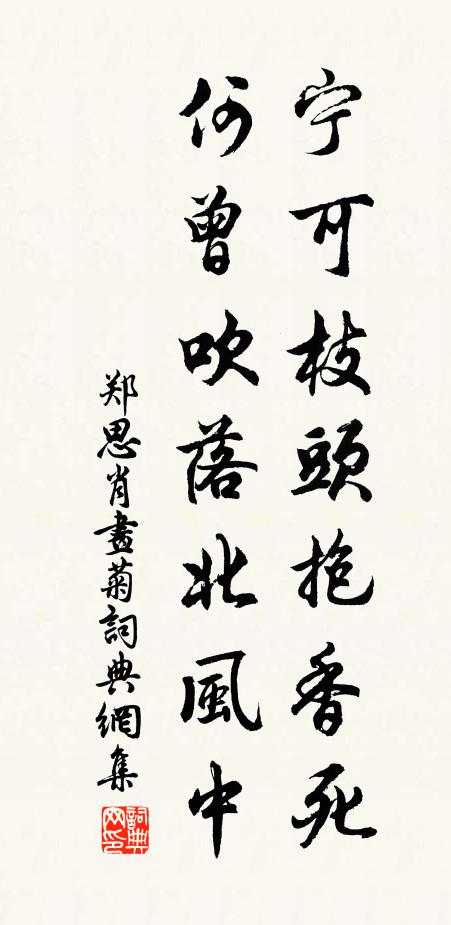 宁可枝頭抱香死
何曾吹落北風中
郑思肖畫菊詞典網集
詞典网印